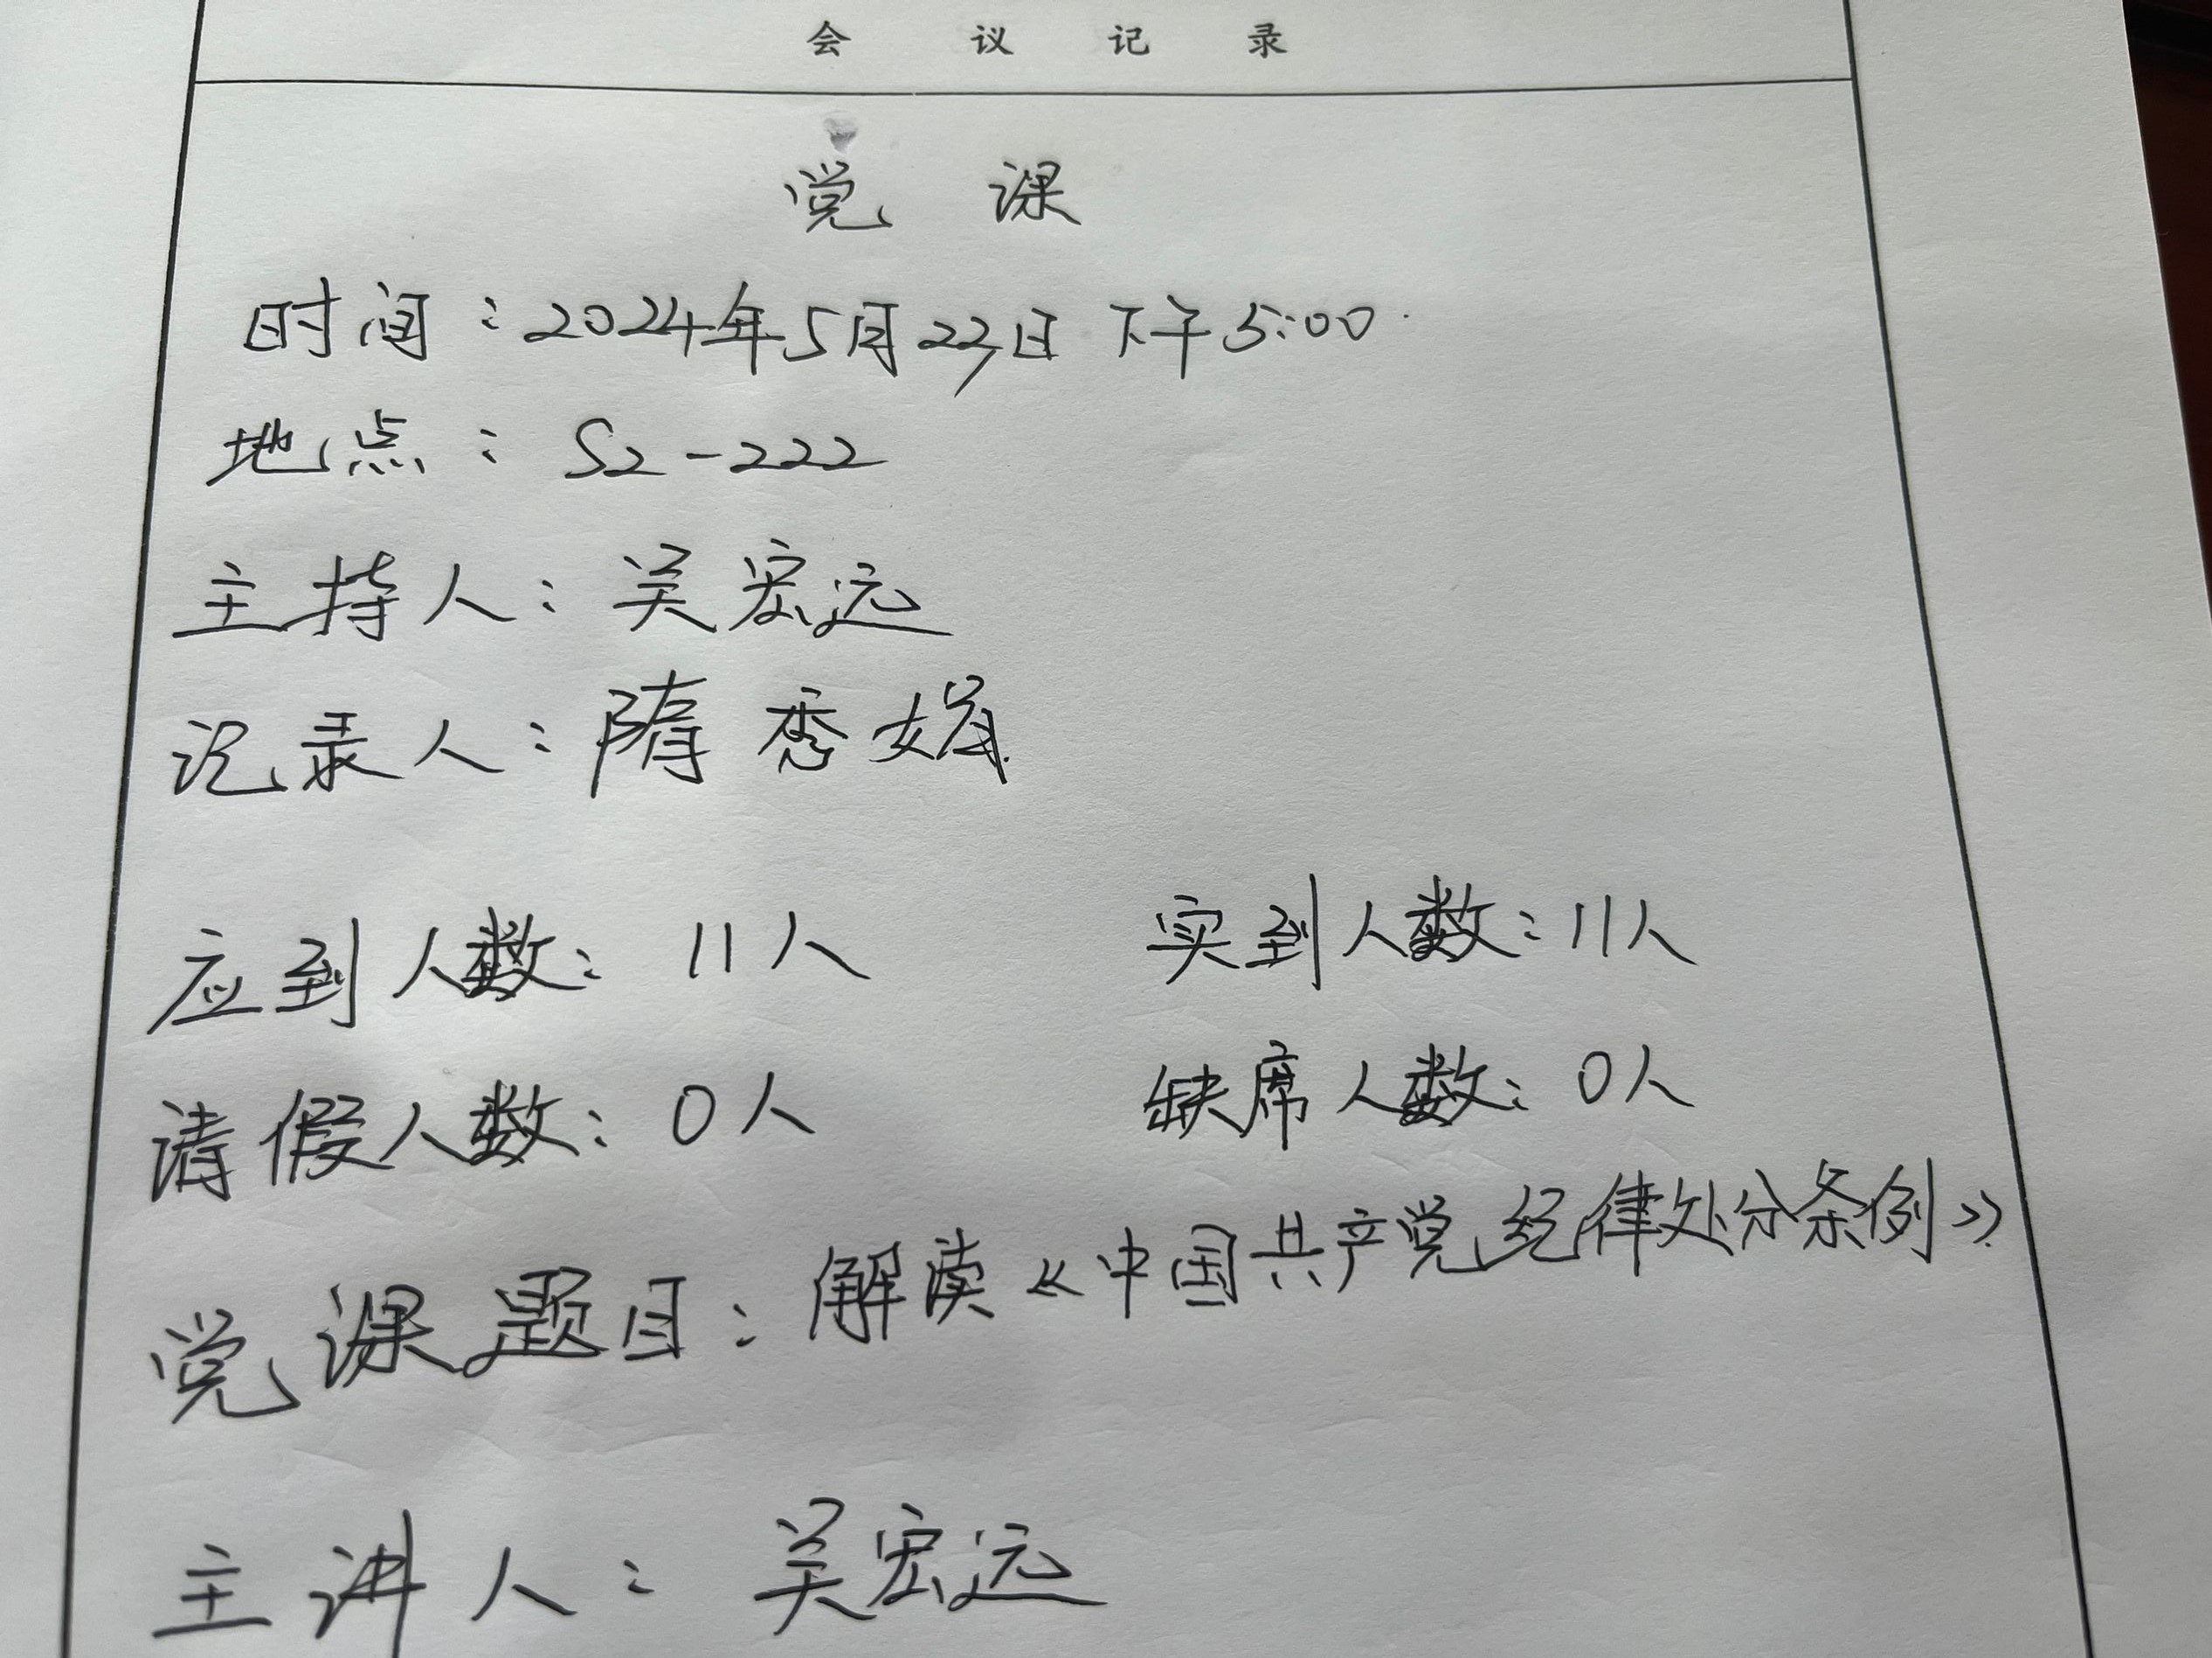 会议记录
党课
时间：2024年5月23日 下午5:00
地点：S2-222
主持人：吴宏远
记录人：隋秀娟
应到人数：11人 实到人数：11人
请假人数：0人 缺席人数：0人
党课题目：解读《中国共产党纪律处分条例》
主讲人：吴宏远